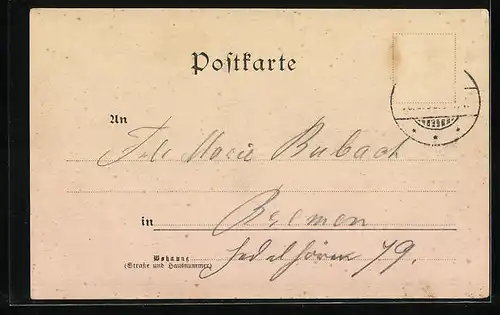 Postkarte
An
Frl. Marie Bubach
in Bremen
Wohnung
(Straße und Hausnummer)
Fedelhören 79.